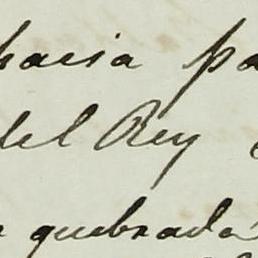 hacia pa
del Rey
quebrada